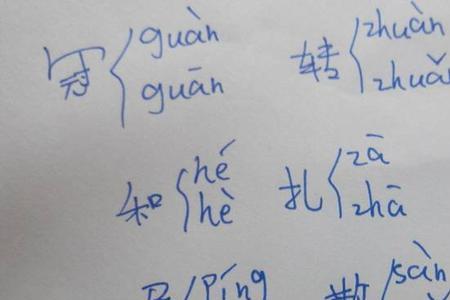 冠 guàn 转 zhuàn
guān zhuǎ
和 hé 扎 zā
hè zhā
píng sàn